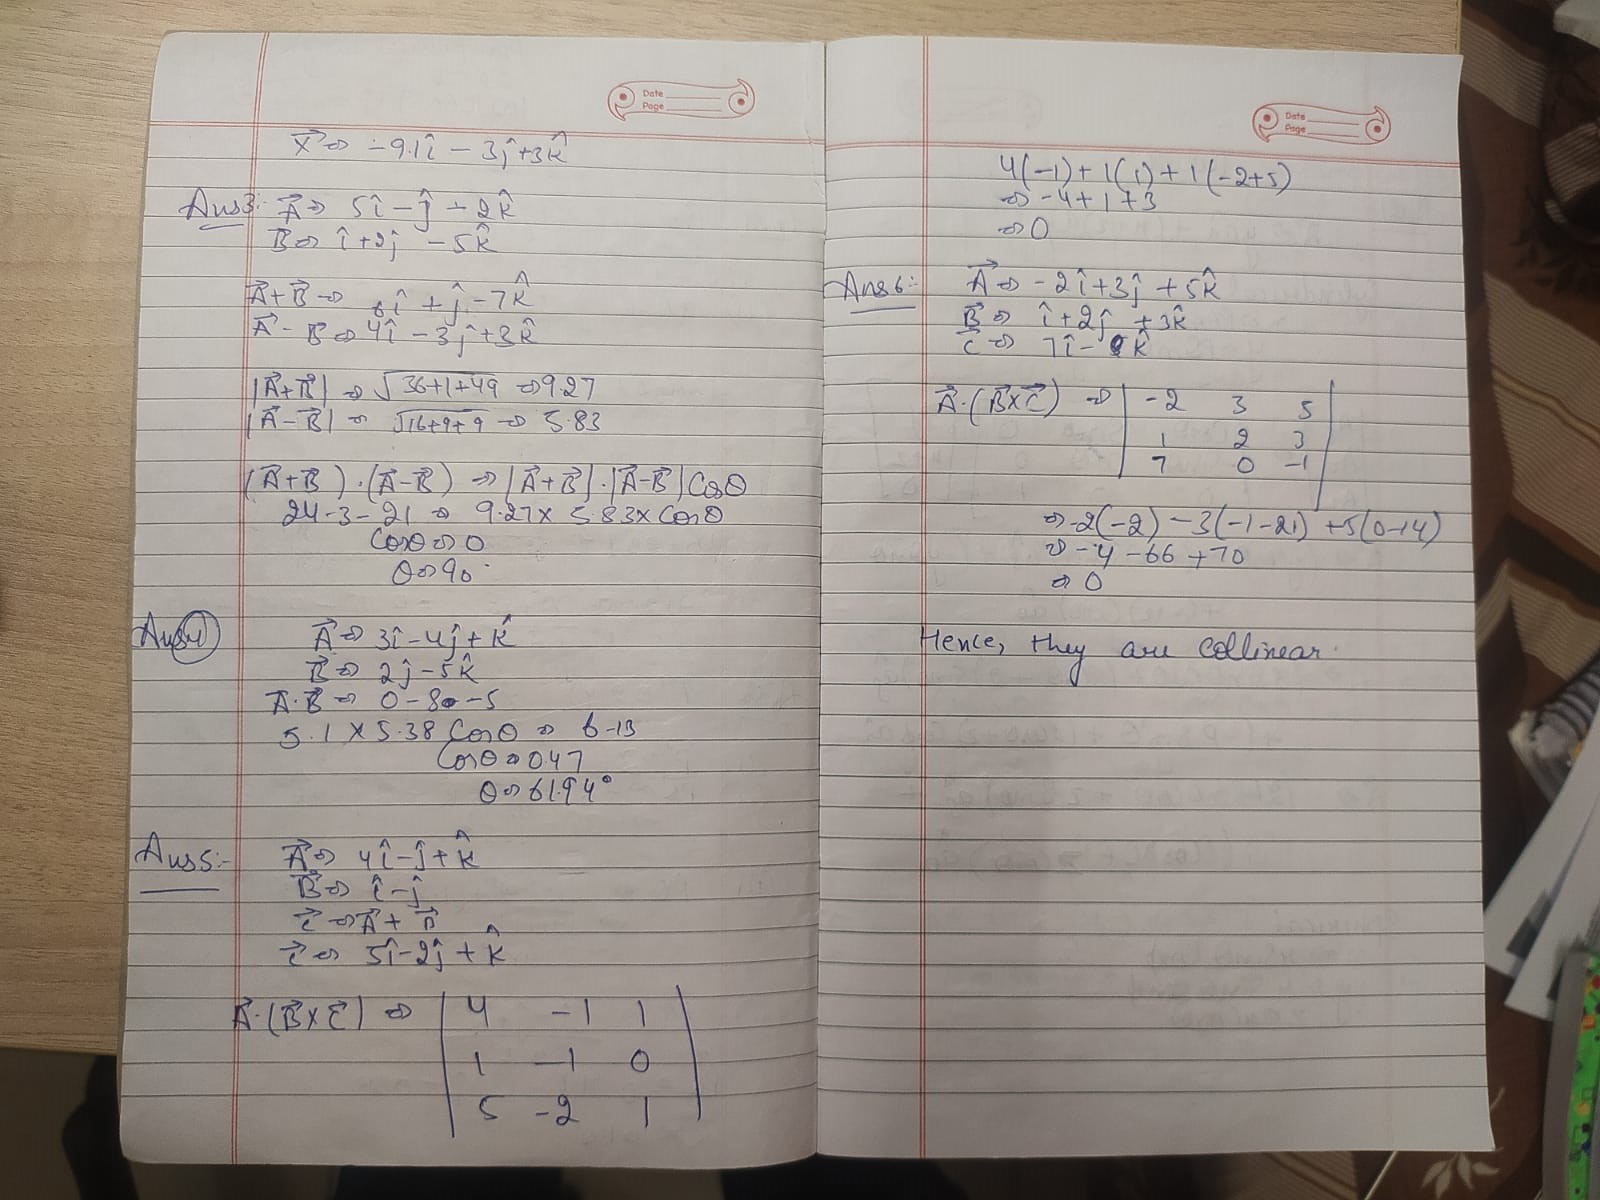 Date
Page
X⃗ ⇒ -9.1î - 3ĵ + 3k̂
Ans3:- A⃗ ⇒ 5î - ĵ - 2k̂
B⃗ ⇒ î + 2ĵ - 5k̂
A⃗+B⃗ ⇒ 6î + ĵ - 7k̂
A⃗ - B⃗ ⇒ 4î - 3ĵ + 3k̂
|A⃗+B⃗| ⇒ √36+1+49 ⇒ 9.27
|A⃗-B⃗| ⇒ √16+9+9 ⇒ 5.83
(A⃗+B⃗).(A⃗-B⃗) ⇒ |A⃗+B⃗|.|A⃗-B⃗| Cosθ
24-3-21 ⇒ 9.27 x 5.83 x Cosθ
Cosθ ⇒ 0
θ ⇒ 90°
Ans4
A⃗ ⇒ 3î - 4ĵ + k̂
B⃗ ⇒ 2ĵ - 5k̂
A⃗.B⃗ ⇒ 0-8-5
5.1 x 5.38 Cosθ ⇒ -13
Cosθ ⇒ 0.47
θ ⇒ 61.94°
Ans5:- A⃗ ⇒ 4î - ĵ + k̂
B⃗ ⇒ î - ĵ
C⃗ ⇒ A⃗ + B⃗
C⃗ ⇒ 5î - 2ĵ + k̂
A⃗.(B⃗xC⃗) ⇒ | 4 -1 1 |
1 -1 0
5 -2 1
Date
Page
4(-1) + 1(1) + 1(-2+5)
⇒ -4+1+3
⇒ 0
Ans6:- A⃗ ⇒ -2î + 3ĵ + 5k̂
B⃗ ⇒ î + 2ĵ + 3k̂
C⃗ ⇒ 7î - k̂
A⃗.(B⃗xC⃗) ⇒ | -2 3 5 |
1 2 3
7 0 -1
⇒ -2(-2) - 3(-1-21) + 5(0-14)
⇒ -4 -66 +70
⇒ 0
Hence, they are collinear.